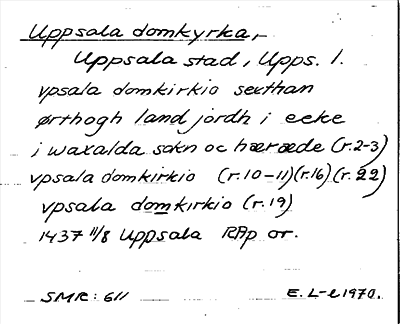 Uppsala domkyrka,
Uppsala stad, Upps. l.
vpsala domkirkio sexthan
ørthogh land jordh i ecke
i waxalda sokn oc hæræde (r.2-3)
vpsala domkirkio (r.10-11)(r.16)(r.22)
vpsala domkirkio (r.19)
1437 11/8 Uppsala RAp or.
SMR: 611 E. L-l 1970.